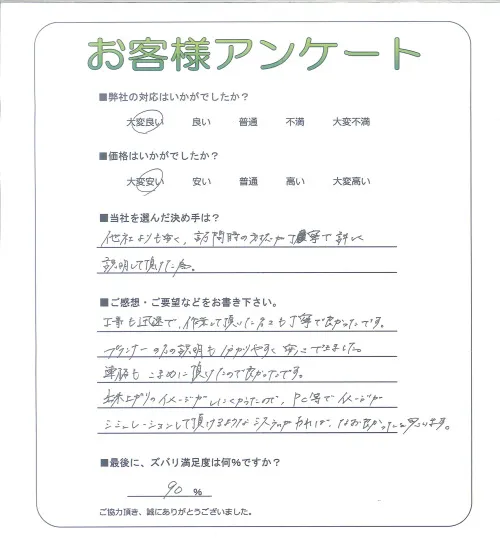 お客様アンケート
■弊社の対応はいかがでしたか？
大変良い 良い 普通 不満 大変不満
■価格はいかがでしたか？
大変安い 安い 普通 高い 大変高い
■当社を選んだ決め手は？
他社よりも安く、訪問時の対応が丁寧で詳しく
説明して頂けた為。
■ご感想・ご要望などをお書き下さい。
工事も迅速で、作業して頂いた方々も丁寧で良かったです。
プランナーの方の説明も分かりやすく安心できました。
連絡もこまめに頂けたので良かったです。
仕上がりのイメージがしにくかったので、PC等でイメージが
シミュレーションして頂けるようなシステムがあれば、なお良かったと思います。
■最後に、ズバリ満足度は何％ですか？
90 %
ご協力頂き、誠にありがとうございました。